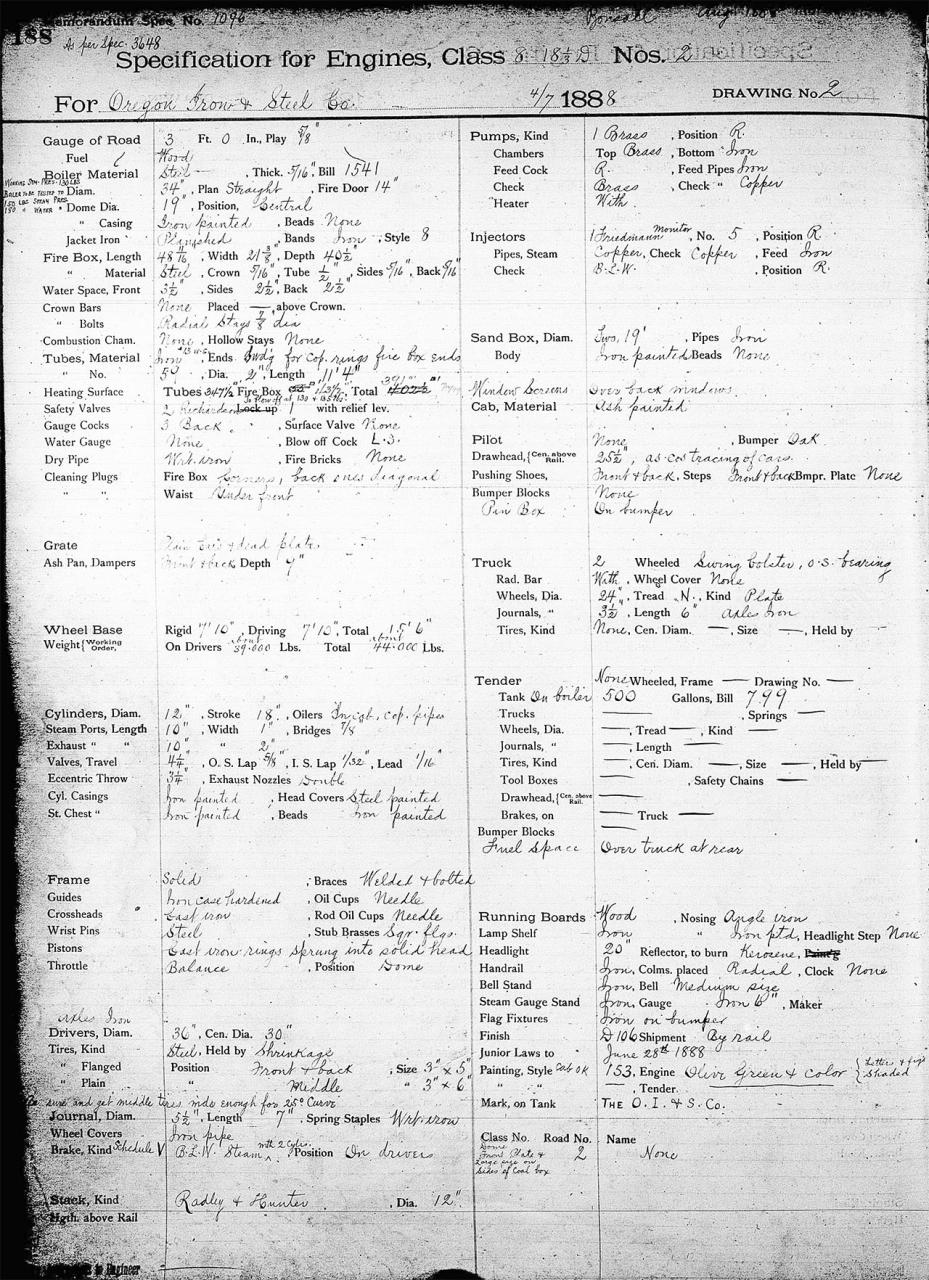 Memorandum Spec. No. 1096 Bonsall Aug 188
188
As per Spec. 3648
Specification for Engines, Class 8-18 1/3 D Nos. 2
For Oregon Iron & Steel Co. 4/7 1888 DRAWING No. 2
Gauge of Road 3 Ft. 0 In., Play 5/8"
Fuel Wood
Boiler Material Steel, Thick. 5/16", Bill 1541
WORKING STM. PRES. 130 LBS
BOILER TO BE TESTED TO
150 LBS STEAM PRES.
180 " WATER "
" Diam. 34", Plan Straight, Fire Door 14"
" Dome Dia. 19", Position, Central
" Casing Iron painted, Beads None
Jacket Iron Planished, Bands Iron, Style 8
Fire Box, Length 48 7/16, Width 21 3/8, Depth 40 1/2"
" Material Steel, Crown 5/16", Tube 1/2", Sides 5/16", Back 5/16"
Water Space, Front 3 1/2", Sides 2 1/2", Back 2 1/2"
Crown Bars None Placed — above Crown.
" Bolts Radial Stays 7/8" dia
Combustion Cham. None, Hollow Stays None
Tubes, Material Iron, Ends Swdg for cop. rings fire box ends
" No. 59, Dia. 2", Length 11' 4"
Heating Surface Tubes 347 1/2 Fire Box Total
Safety Valves 2 Richardson Lock up 1 with relief lev.
Gauge Cocks 3 Back, Surface Valve None
Water Gauge None, Blow off Cock L.S.
Dry Pipe Wrt. iron, Fire Bricks None
Cleaning Plugs Fire Box Corners, back ones diagonal
" " Waist Under front
Grate Plain bars & dead plate
Ash Pan, Dampers Front & back Depth 9"
Wheel Base Rigid 7' 10", Driving 7' 10", Total 15' 6"
Weight {Working Order, On Drivers about 39.000 Lbs. Total about 44.000 Lbs.
Cylinders, Diam. 12", Stroke 18", Oilers In cab, cop. pipes
Steam Ports, Length 10", Width 1", Bridges 7/8
Exhaust " " 10" " 2"
Valves, Travel 4 1/4", O. S. Lap 5/8", I. S. Lap 1/32", Lead 1/16"
Eccentric Throw 3 3/4", Exhaust Nozzles Double
Cyl. Casings Iron painted, Head Covers Steel painted
St. Chest " Iron painted, Beads Iron painted
Frame Solid, Braces Welded & bolted
Guides Iron case hardened, Oil Cups Needle
Crossheads Cast iron, Rod Oil Cups Needle
Wrist Pins Steel, Stub Brasses Sqr. flgs.
Pistons Cast iron rings sprung into solid head
Throttle Balance, Position Dome
Axles Iron
Drivers, Diam. 36", Cen. Dia. 30"
Tires, Kind Steel, Held by Shrinkage
" Flanged Position Front & back, Size 3" x 5"
" Plain " Middle " 3" x 6"
Be sure and get middle tires wide enough for 25° Curve
Journal, Diam. 5 1/2", Length 7", Spring Staples Wrt. iron
Wheel Covers Iron pipe
Brake, Kind Schedule V B.L.W. Steam with 2 Cyls., Position On drivers
Stack, Kind Radley & Hunter, Dia. 12"
Hgth. above Rail
to Engineer
Pumps, Kind 1 Brass, Position R.
Chambers Top Brass, Bottom Iron
Feed Cock R., Feed Pipes Iron
Check Brass, Check " Copper
Heater With
Injectors 1 Friedmann Monitor, No. 5, Position R
Pipes, Steam Copper, Check Copper, Feed Iron
Check B.L.W., Position R.
Sand Box, Diam. Two, 19", Pipes Iron
Body Iron painted Beads None
Window Screens Over back windows
Cab, Material Ash painted
Pilot None, Bumper Oak
Drawhead, {Cen. above Rail. 25 1/2", as cos tracing of cars.
Pushing Shoes, Front & back, Steps Front & back Bmpr. Plate None
Bumper Blocks None
Pin Box On bumper
Truck 2 Wheeled Swing bolster, O.S. bearing
Rad. Bar With, Wheel Cover None
Wheels, Dia. 24", Tread N., Kind Plate
Journals, " 3 1/2", Length 6" Axles Iron
Tires, Kind None, Cen. Diam. —, Size —, Held by —
Tender None Wheeled, Frame — Drawing No. —
Tank On boiler 500 Gallons, Bill 799
Trucks —, Springs —
Wheels, Dia. —, Tread —, Kind —
Journals, " —, Length —
Tires, Kind —, Cen. Diam. —, Size —, Held by —
Tool Boxes —, Safety Chains —
Drawhead, {Cen. above Rail. —
Brakes, on — Truck —
Bumper Blocks —
Fuel Space Over truck at rear
Running Boards Wood, Nosing Angle iron
Lamp Shelf Iron " Iron ptd, Headlight Step None
Headlight 20" Reflector, to burn Kerosene,
Handrail Iron, Colms. placed Radial, Clock None
Bell Stand Iron, Bell Medium size
Steam Gauge Stand Iron, Gauge Iron 6", Maker
Flag Fixtures Iron on bumper
Finish D 106 Shipment By rail
Junior Laws to June 28th 1888
Painting, Style Cab OK 153, Engine Olive Green & color {Letter & figs Shaded
" " —, Tender —
Mark, on Tank THE O. I. & S. Co.
Class No. Road No. Name
Dome
Front Plate & 2 None
Large size on
sides of Coal box